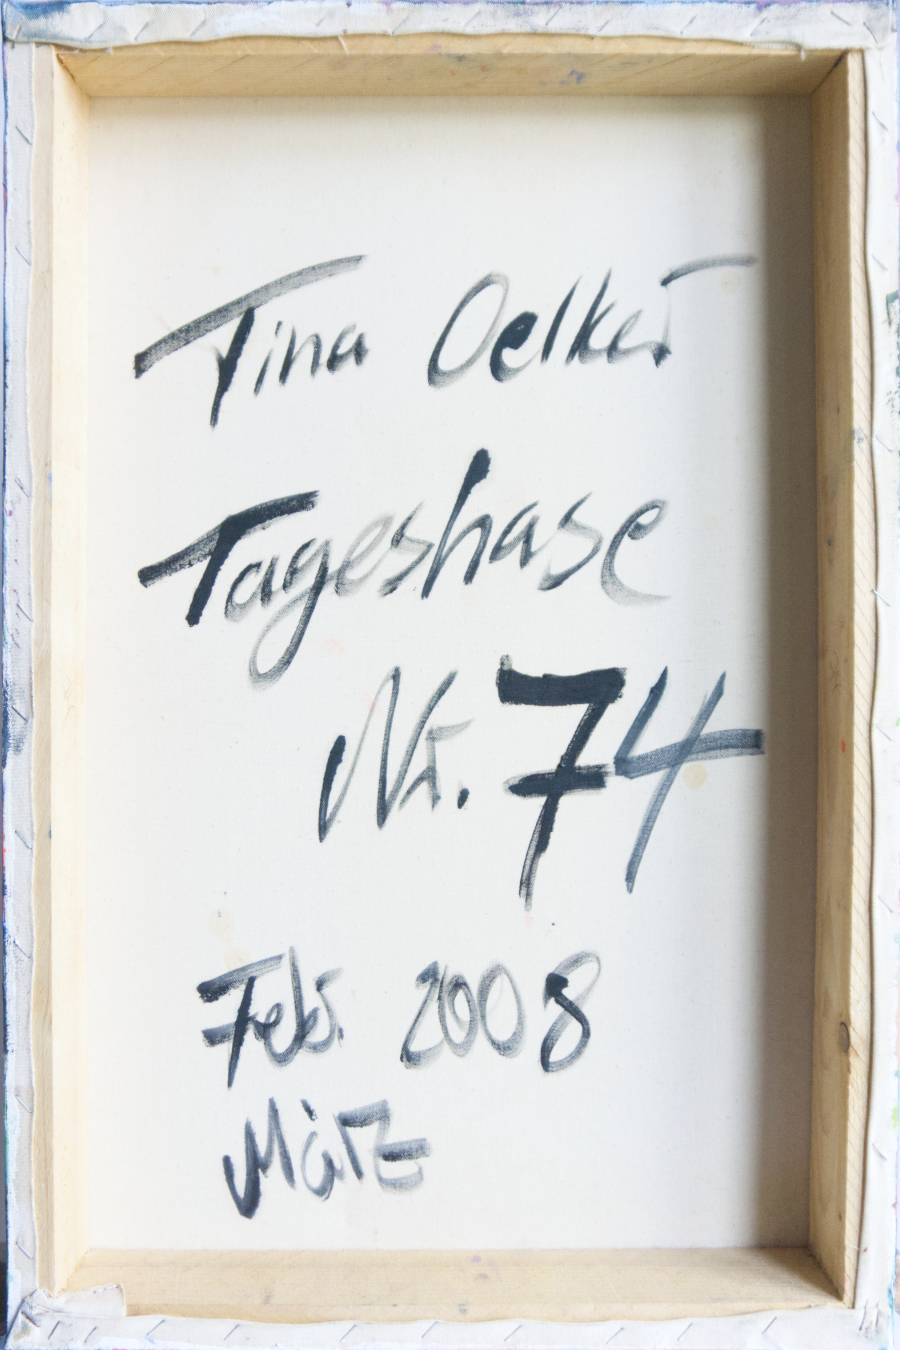 Tina Oelker
Tageshase
Nr. 74
Feb. 2008
März